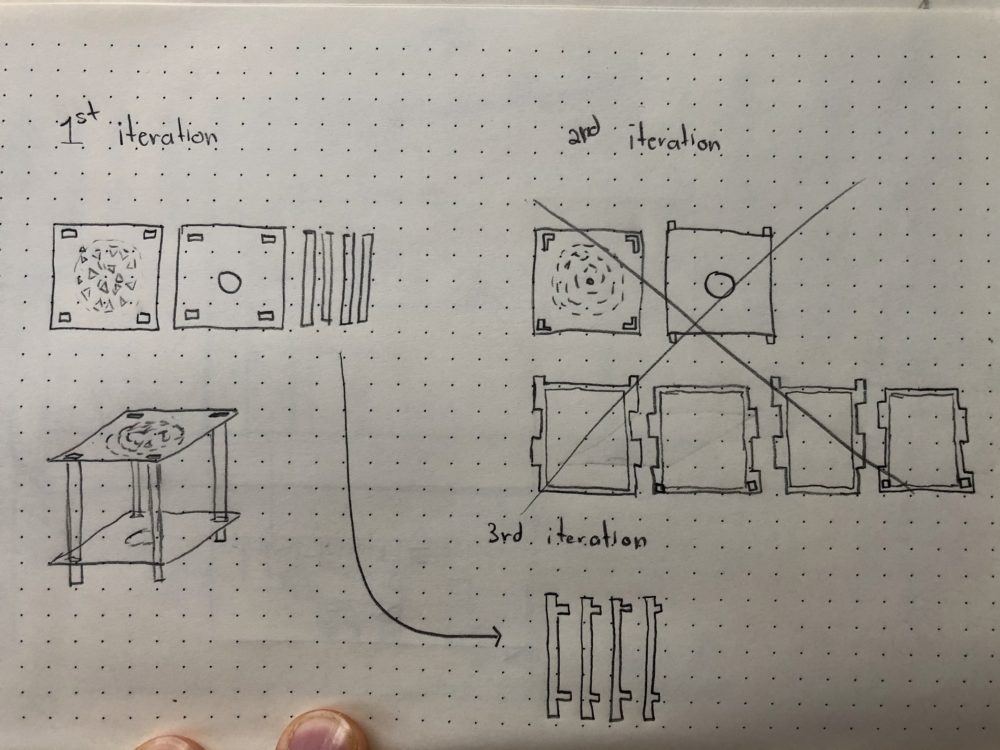 1st iteration
2nd iteration
3rd. iteration